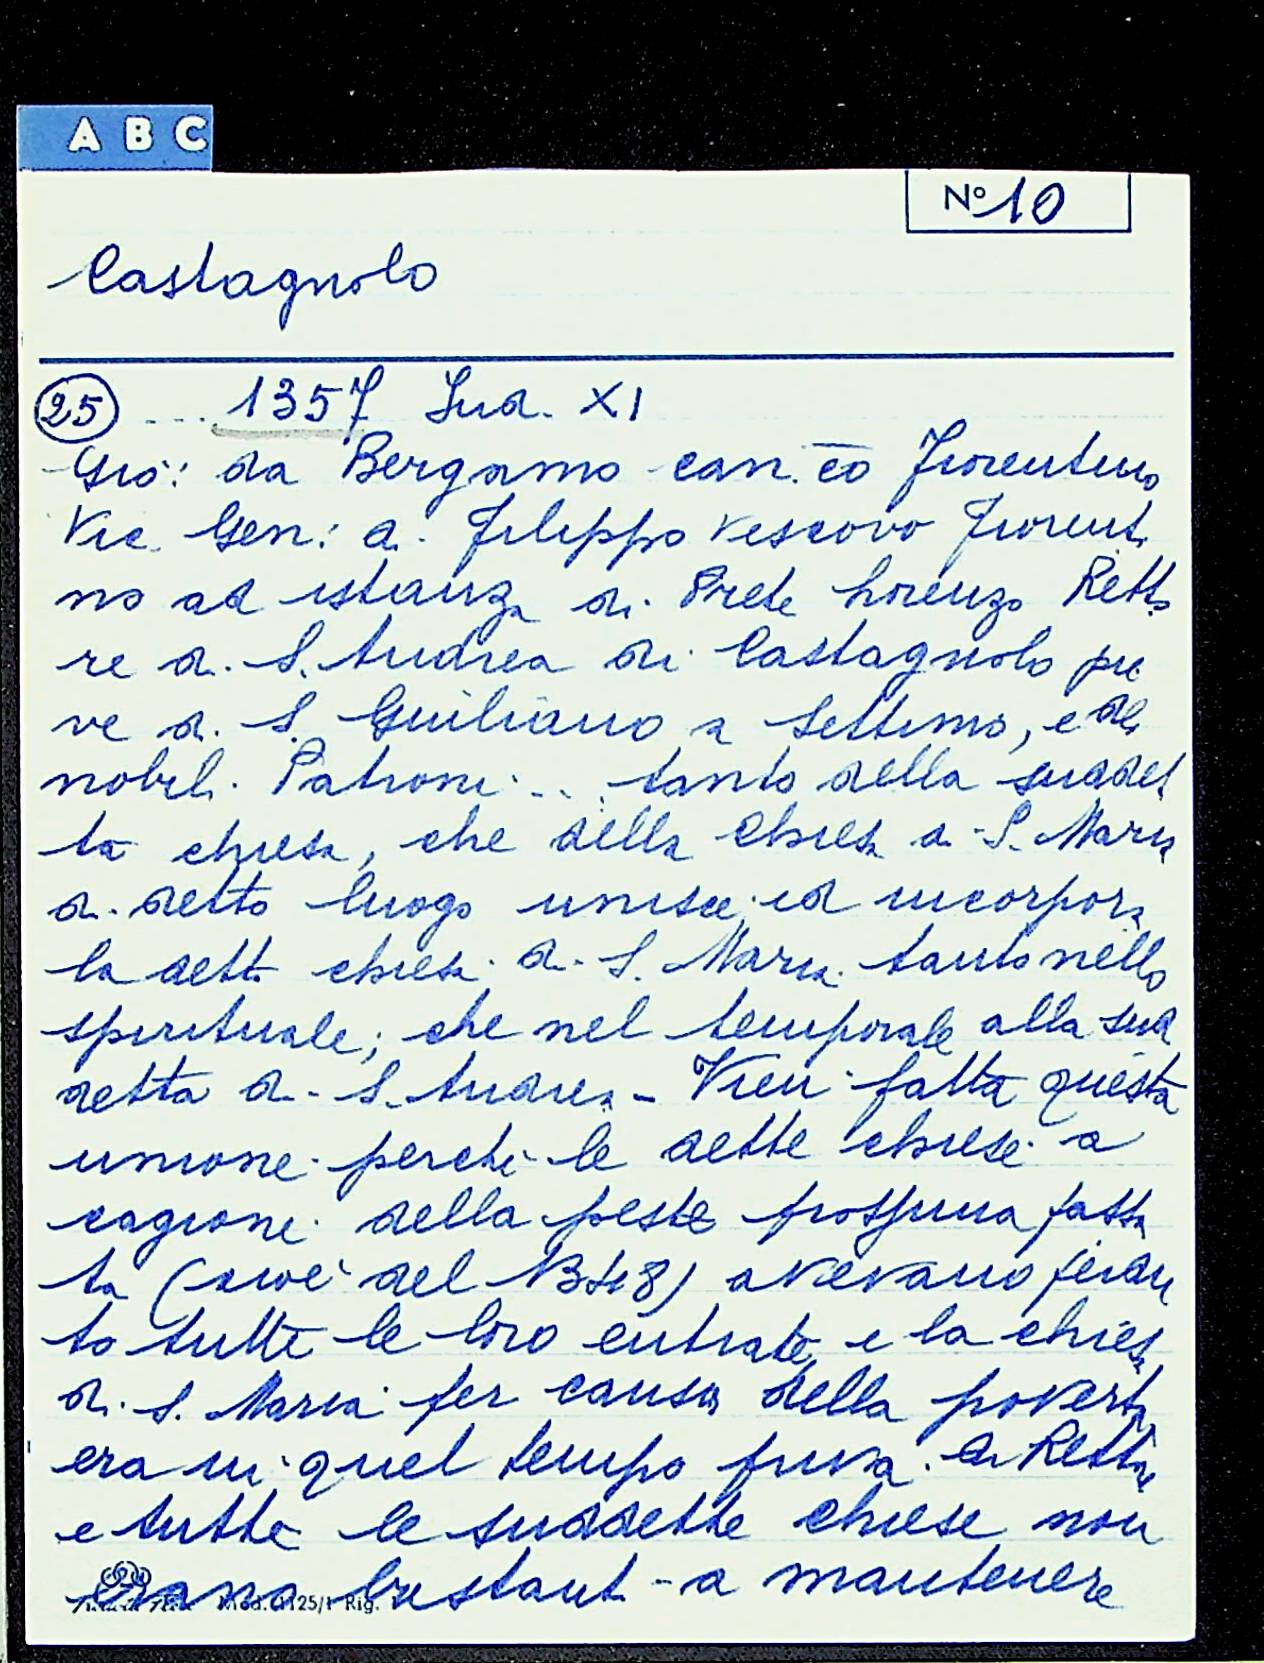 A B C
Nº 10
Castagnolo
25 ... 1357 Ind. XI
Gio: da Bergamo can.co Fiorentino
Vic. Gen: di Filippo Vescovo Fiorenti
no ad istanza di Prete Lorenzo Retto
re di S. Andrea di Castagnolo pie
ve di S. Giuliano a Settimo, e de
nobil. Patroni ... tanto della suddet
ta chiesa, che della chiesa di S. Maria
di detto luogo unisce, ed incorpora
la detta chiesa di S. Maria tanto nello
spirituale, che nel temporale alla sud
detta di S. Andrea - Vien fatta questa
unione perchè le dette chiese a
cagione della peste prossima passa
ta (cioè del 1348) avevano perdu
to tutte le loro entrate, e la chiesa
di S. Maria per causa della povertà
era in quel tempo priva di Rettore
e tutte le suddette chiese non
erano bastanti a mantenere
Mod. 0125/1 Rig.